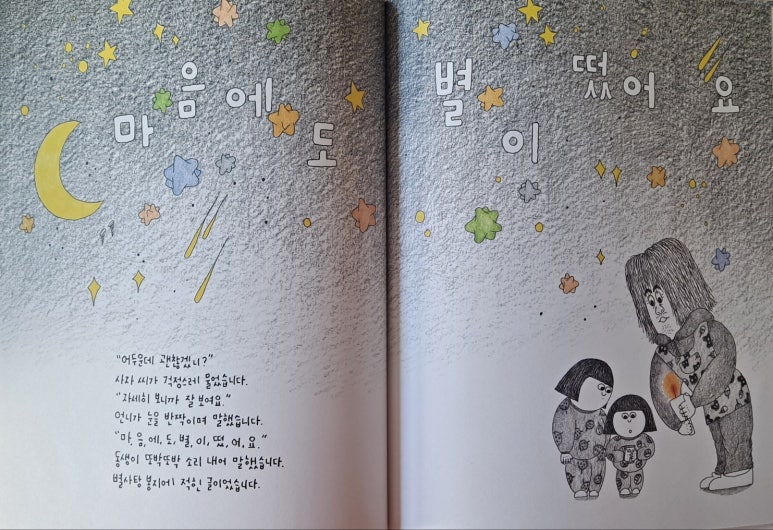 마음에도 별이 떴어요
"어두운데 괜찮겠니?"
사자 씨가 걱정스레 물었습니다.
"자세히 보니까 잘 보여요."
언니가 눈을 반짝이며 말했습니다.
"마, 음, 에, 도, 별, 이, 떴, 어, 요."
동생이 또박또박 소리 내어 말했습니다.
별사탕 봉지에 적힌 글이었습니다.